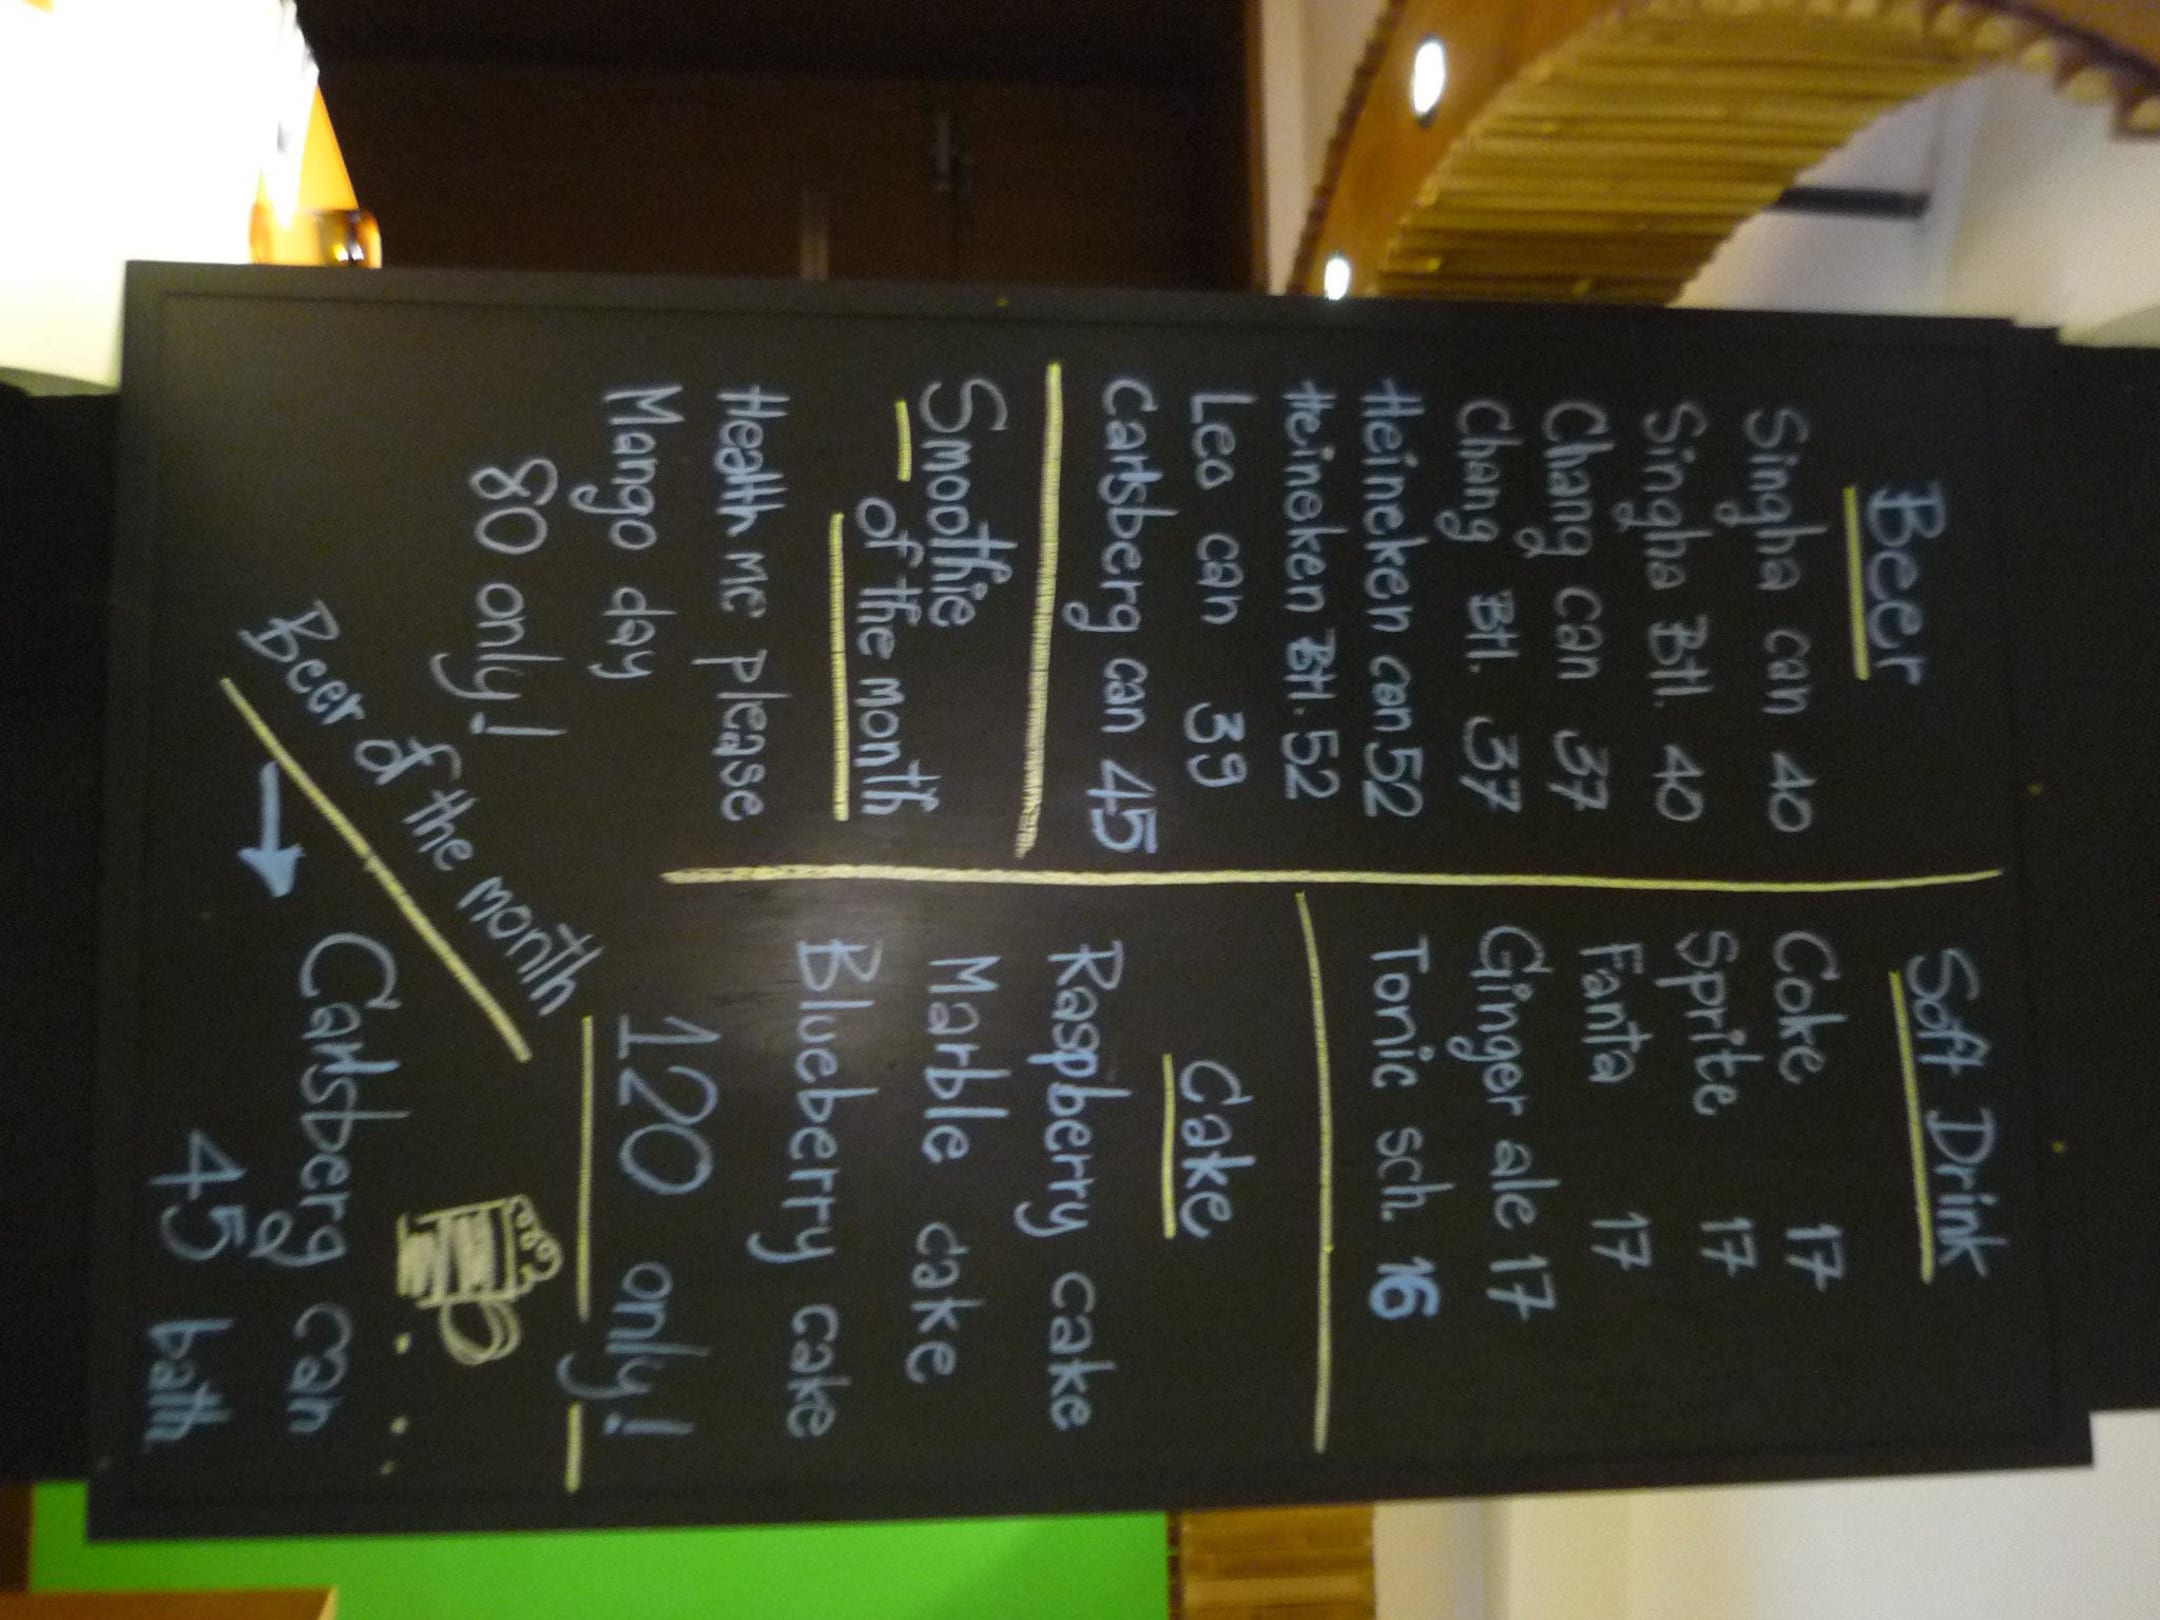 Beer
Singha can 40
Singha Btl. 40
Chang can 37
Chang Btl. 37
Heineken can 52
Heineken Btl. 52
Leo can 39
Carlsberg can 45
Smoothie
of the month
Health me please
Mango day
80 only!
Soft Drink
Coke 17
Sprite 17
Fanta 17
Ginger ale 17
Tonic sch. 16
Cake
Raspberry cake
Marble cake
Blueberry cake
120 only!
Beer of the month
Carlsberg can
45 bath